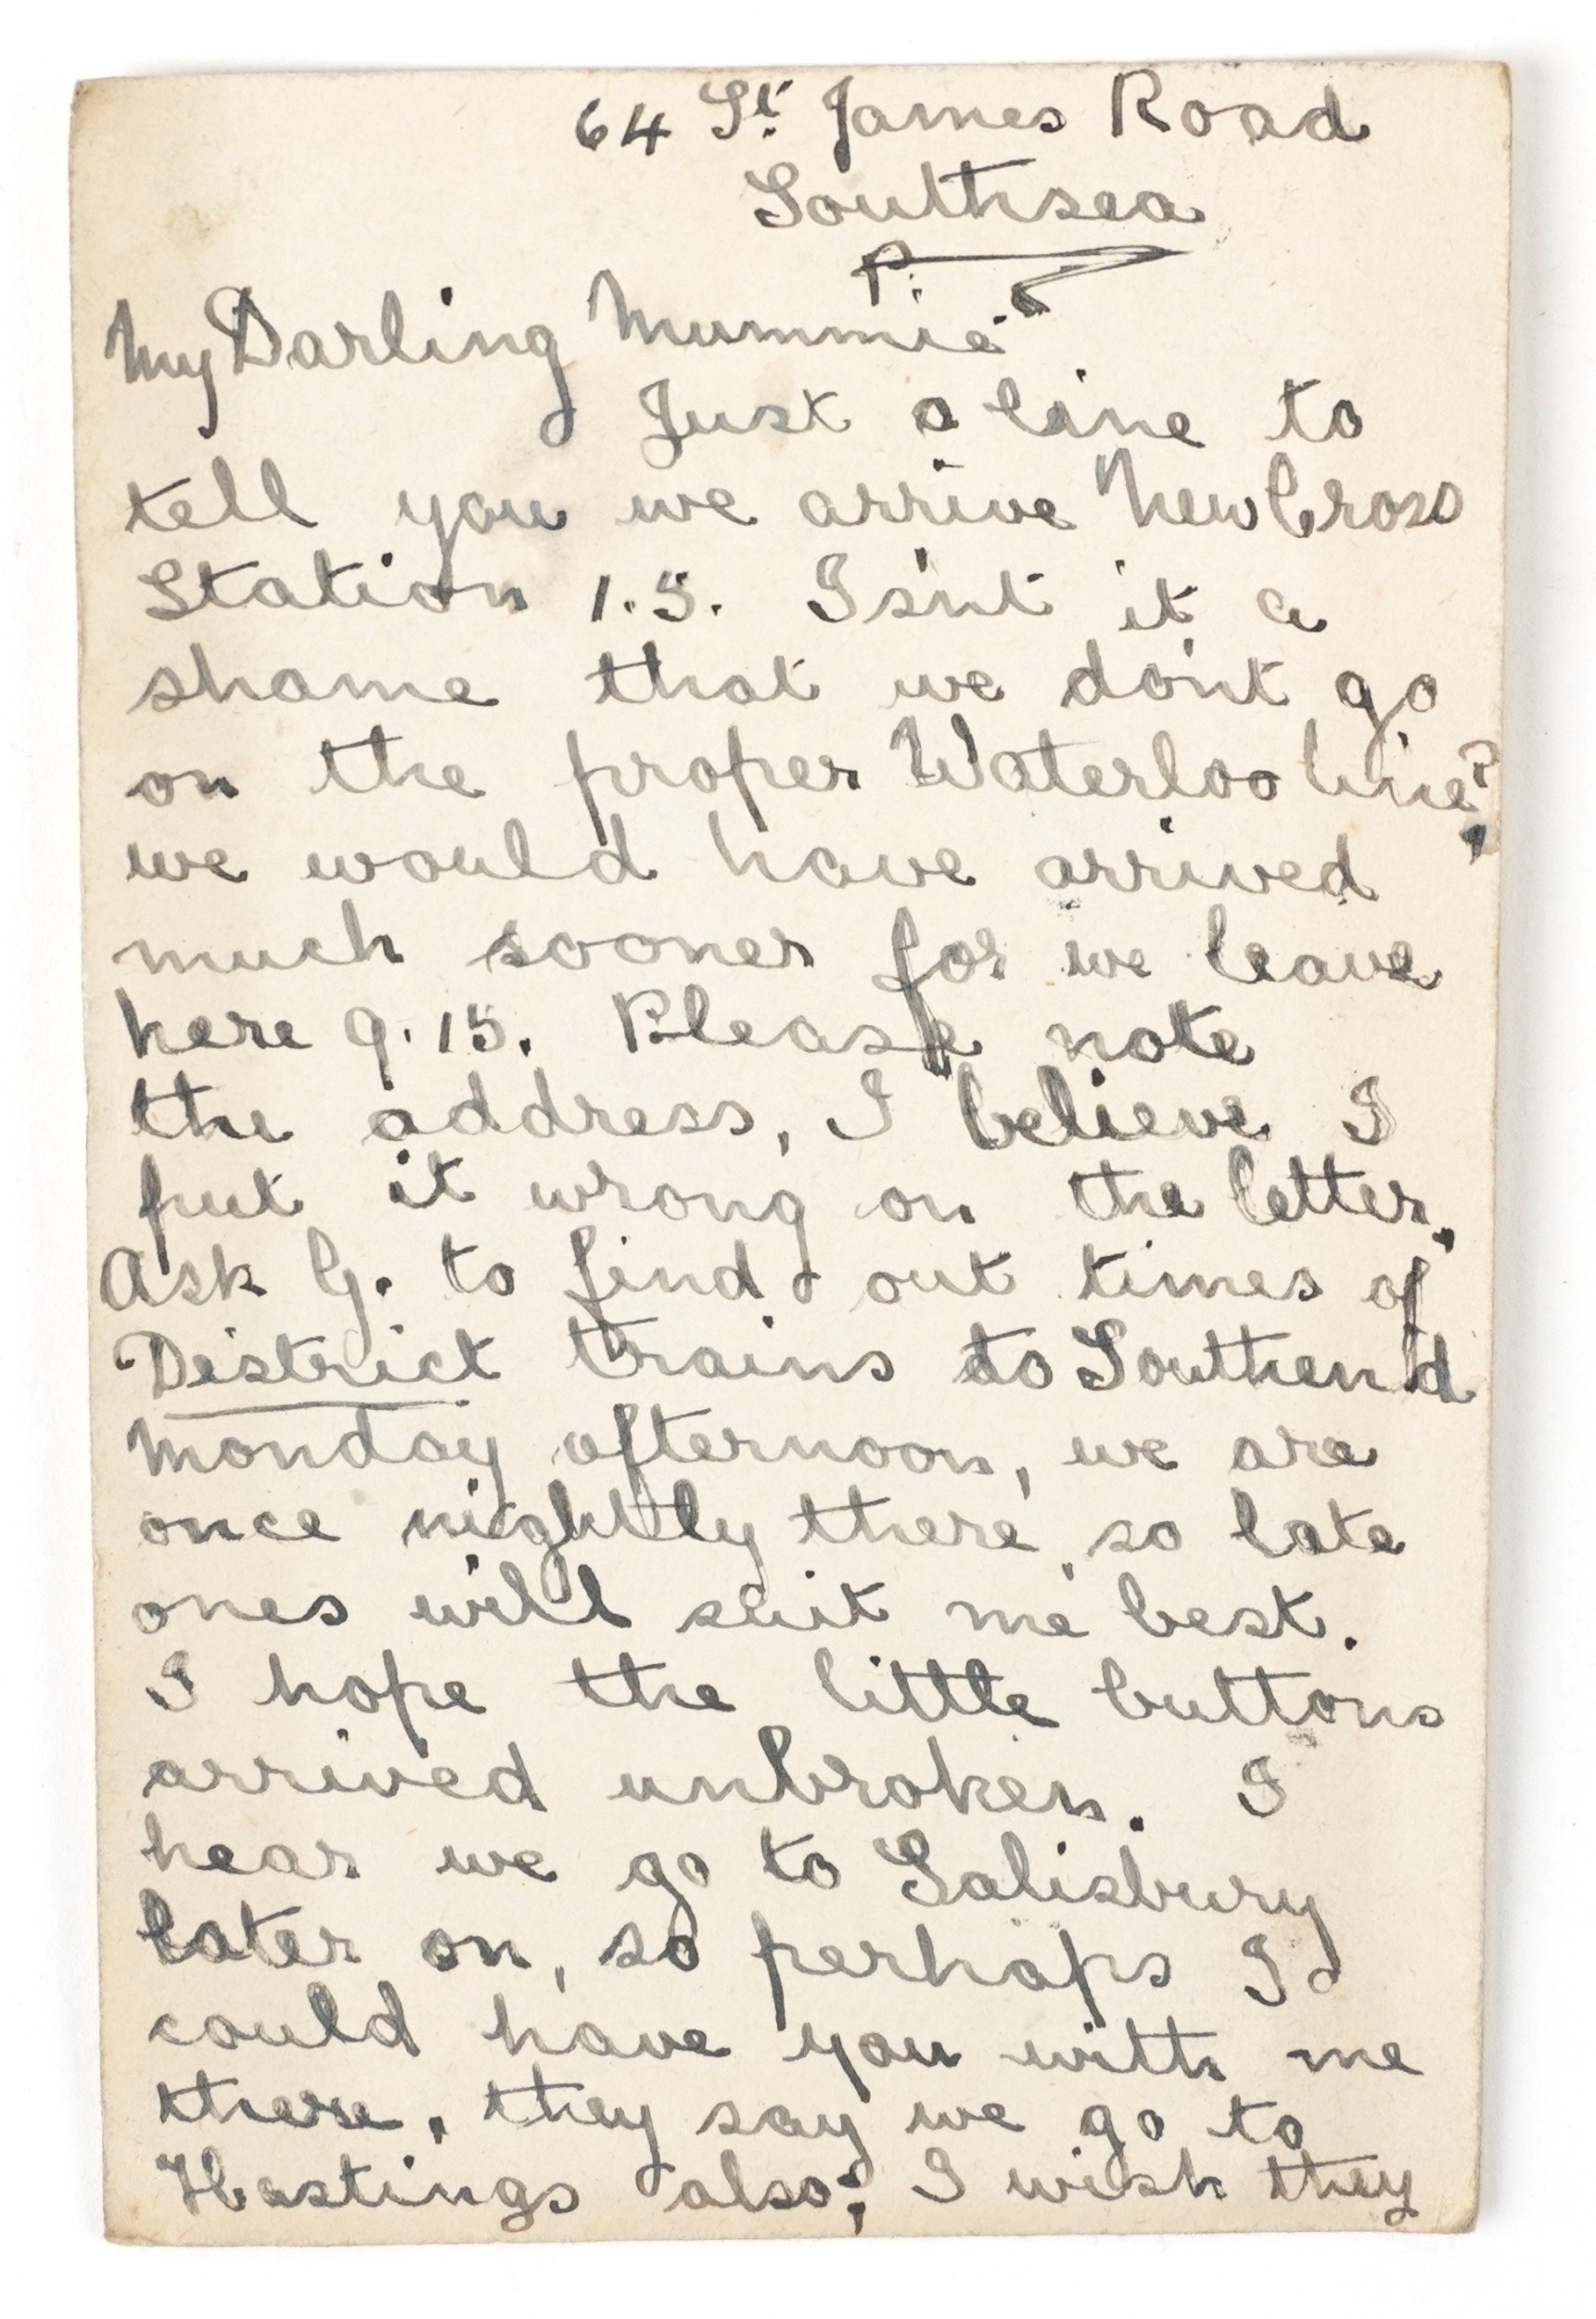 64 St. James Road
Southsea
P.
My Darling Mummie
Just a line to
tell you we arrive New Cross
Station 1.5. Isn't it a
shame that we don't go
on the proper Waterloo line?
we would have arrived
much sooner for we leave
here 9.15. Please note
the address, I believe I
put it wrong on the letter.
Ask G. to find out times of
District trains to Southend
Monday afternoon, we are
once nightly there, so late
ones will suit me best.
I hope the little buttons
arrived unbroken. I
hear we go to Salisbury
later on, so perhaps I
could have you with me
there, they say we go to
Hastings also; I wish they